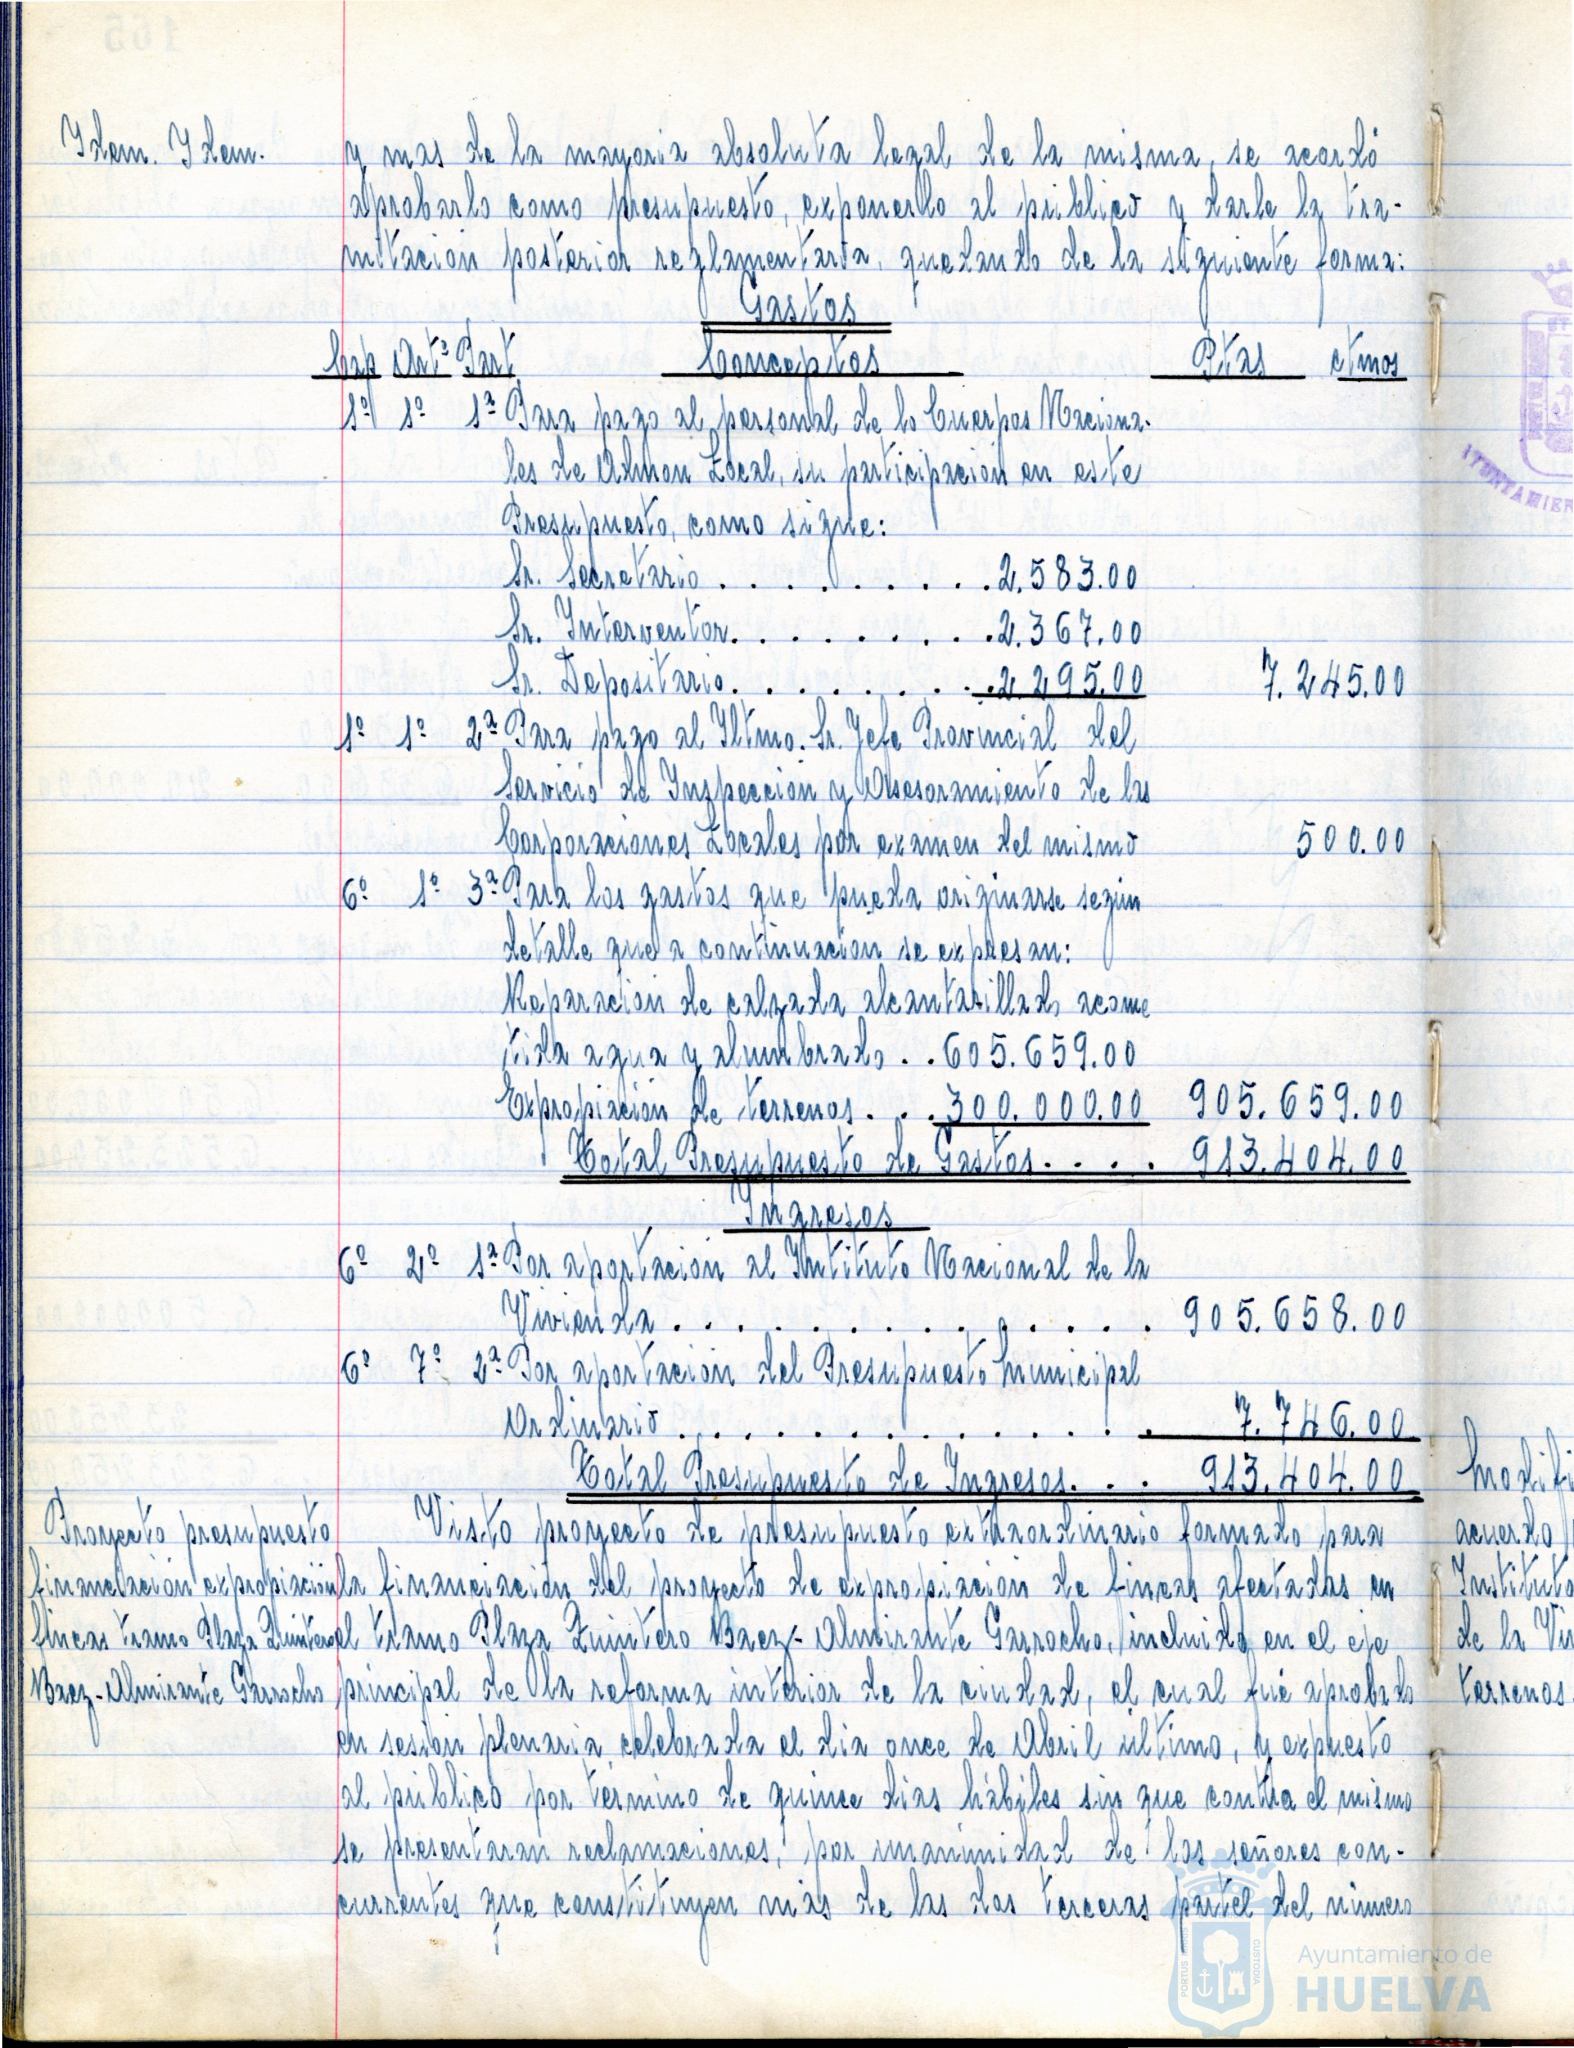 Idem. Idem.
y mas de la mayoria absoluta legal de la misma, se acordó
aprobarlo como presupuesto, exponerlo al público y darle la tra-
mitación posterior reglamentaria, quedando de la siguiente forma:
Gastos
Cap Artº Part Conceptos Ptas ctmos
1º 1º 1ª Para pago al personal de lo Cuerpos Naciona-
les de Admon Local, su participación en este
Presupuesto, como sigue:
Sr. Secretario . . . . . . . . . 2.583.00
Sr. Interventor. . . . . . . . 2.367.00
Sr. Depositario. . . . . . . . 2.295.00 7.245.00
1º 1º 2ª Para pago al Iltmo. Sr. Jefe Provincial del
Servicio de Inspección y Asesoramiento de las
Corporaciones Locales por examen del mismo 500.00
6º 1º 3ª Para los gastos que pueda originarse según
detalle que a continuación se expresan:
Reparación de calzada alcantarillado acome
tida agua y alumbrado . . 605.659.00
Expropiación de terrenos. . . 300.000.00 905.659.00
Total Presupuesto de Gastos. . . . 913.404.00
Ingresos
6º 2º 1ª Por aportación al Intituto Nacional de la
Vivienda . . . . . . . . . . . . . . . 905.658.00
6º 7º 2ª Por aportación del Presupuesto Municipal
Ordinario . . . . . . . . . . . . . . 7.746.00
Total Presupuesto de Ingresos. . . 913.404.00
Proyecto presupuesto
financiación expropiación
fincas tramo Plaza Quintero
Baez-Almirante Garrocho
Visto proyecto de presupuesto extraordinario formado para
la financiación del proyecto de expropiación de fincas afectadas en
el tramo Plaza Quintero Baez-Almirante Garrocho, incluido en el eje
principal de la reforma interior de la ciudad, el cual fué aprobado
en sesión plenaria celebrada el dia once de Abril último, y expuesto
al público por término de quince dias hábiles sin que contra el mismo
se presentaran reclamaciones, por unanimidad de los señores con-
currentes que constituyen más de las dos terceras partel del número
Modifi
acuerdo
Instituto
de la Viv
terrenos.
PORTUS CUSTODIA
Ayuntamiento de
HUELVA